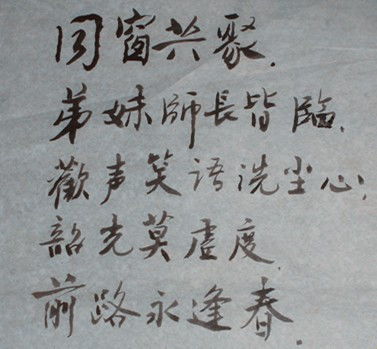 同窗共聚.
弟妹師長皆臨.
歡声笑语洗尘心.
韶光莫虚度.
前路永逢春.